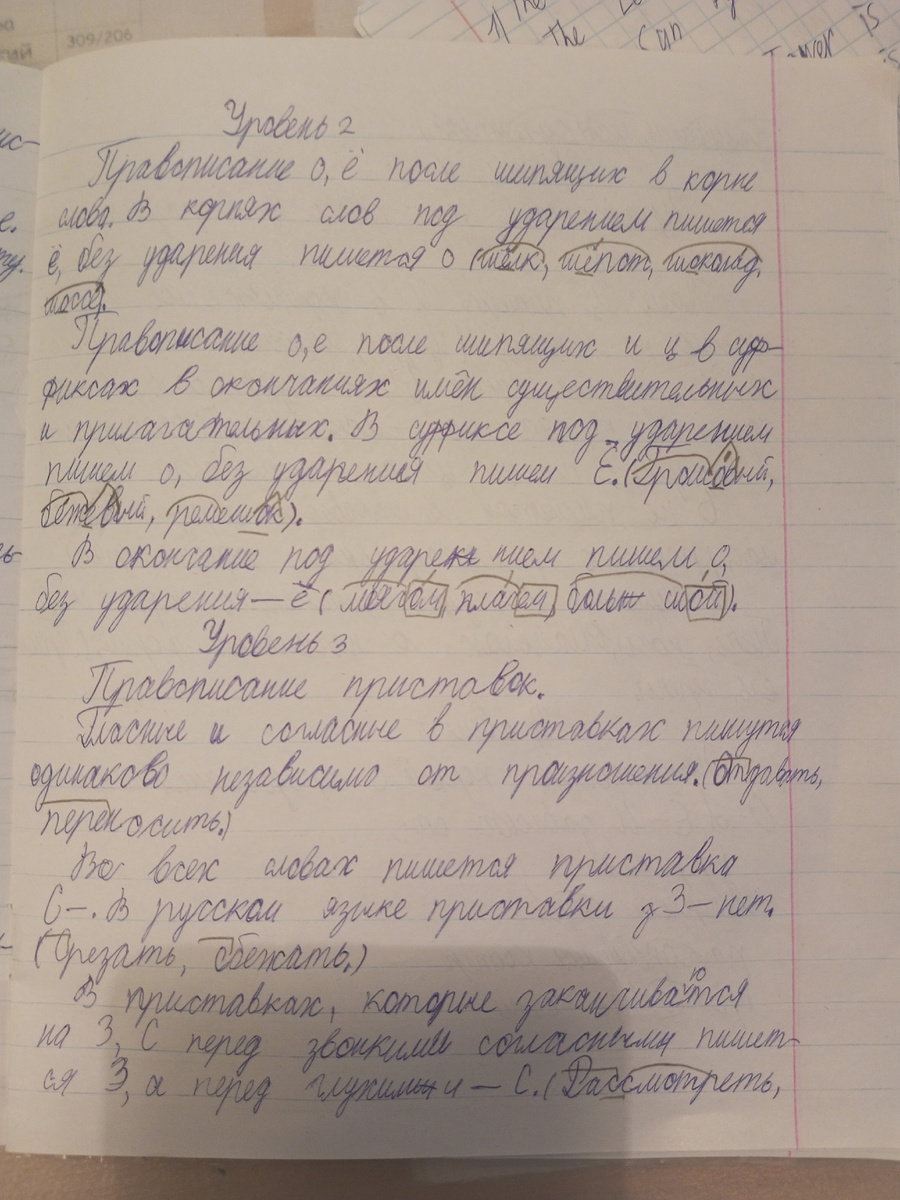 309/206
Уровень 2
Правописание о, ё после шипящих в корне
слова. В корнях слов под ударением пишется
ё, без ударения пишется о (шёлк, шёпот, шоколад,
шоссе).
Правописание о, е после шипящих и ц в суф-
фиксах в окончаниях имён существительных
и прилагательных. В суффиксе под ударением
пишем о, без ударения пишем Е. (Грошовый,
бежевый, ремешок).
В окончание под ударе нием пишем о,
без ударения — е (мячом, плачем, боль шой).
Уровень 3
Правописание приставок.
Гласные и согласные в приставках пишутся
одинаково независимо от произношения. (Отдавать,
переносить.)
Во всех словах пишется приставка
С-. В русском языке приставки з З - нет.
(Срезать, сбежать.)
В приставках, которые заканчиваются
на З, С перед звонкими согласными пишет-
ся З, а перед глухими — С. (Рассмотреть,